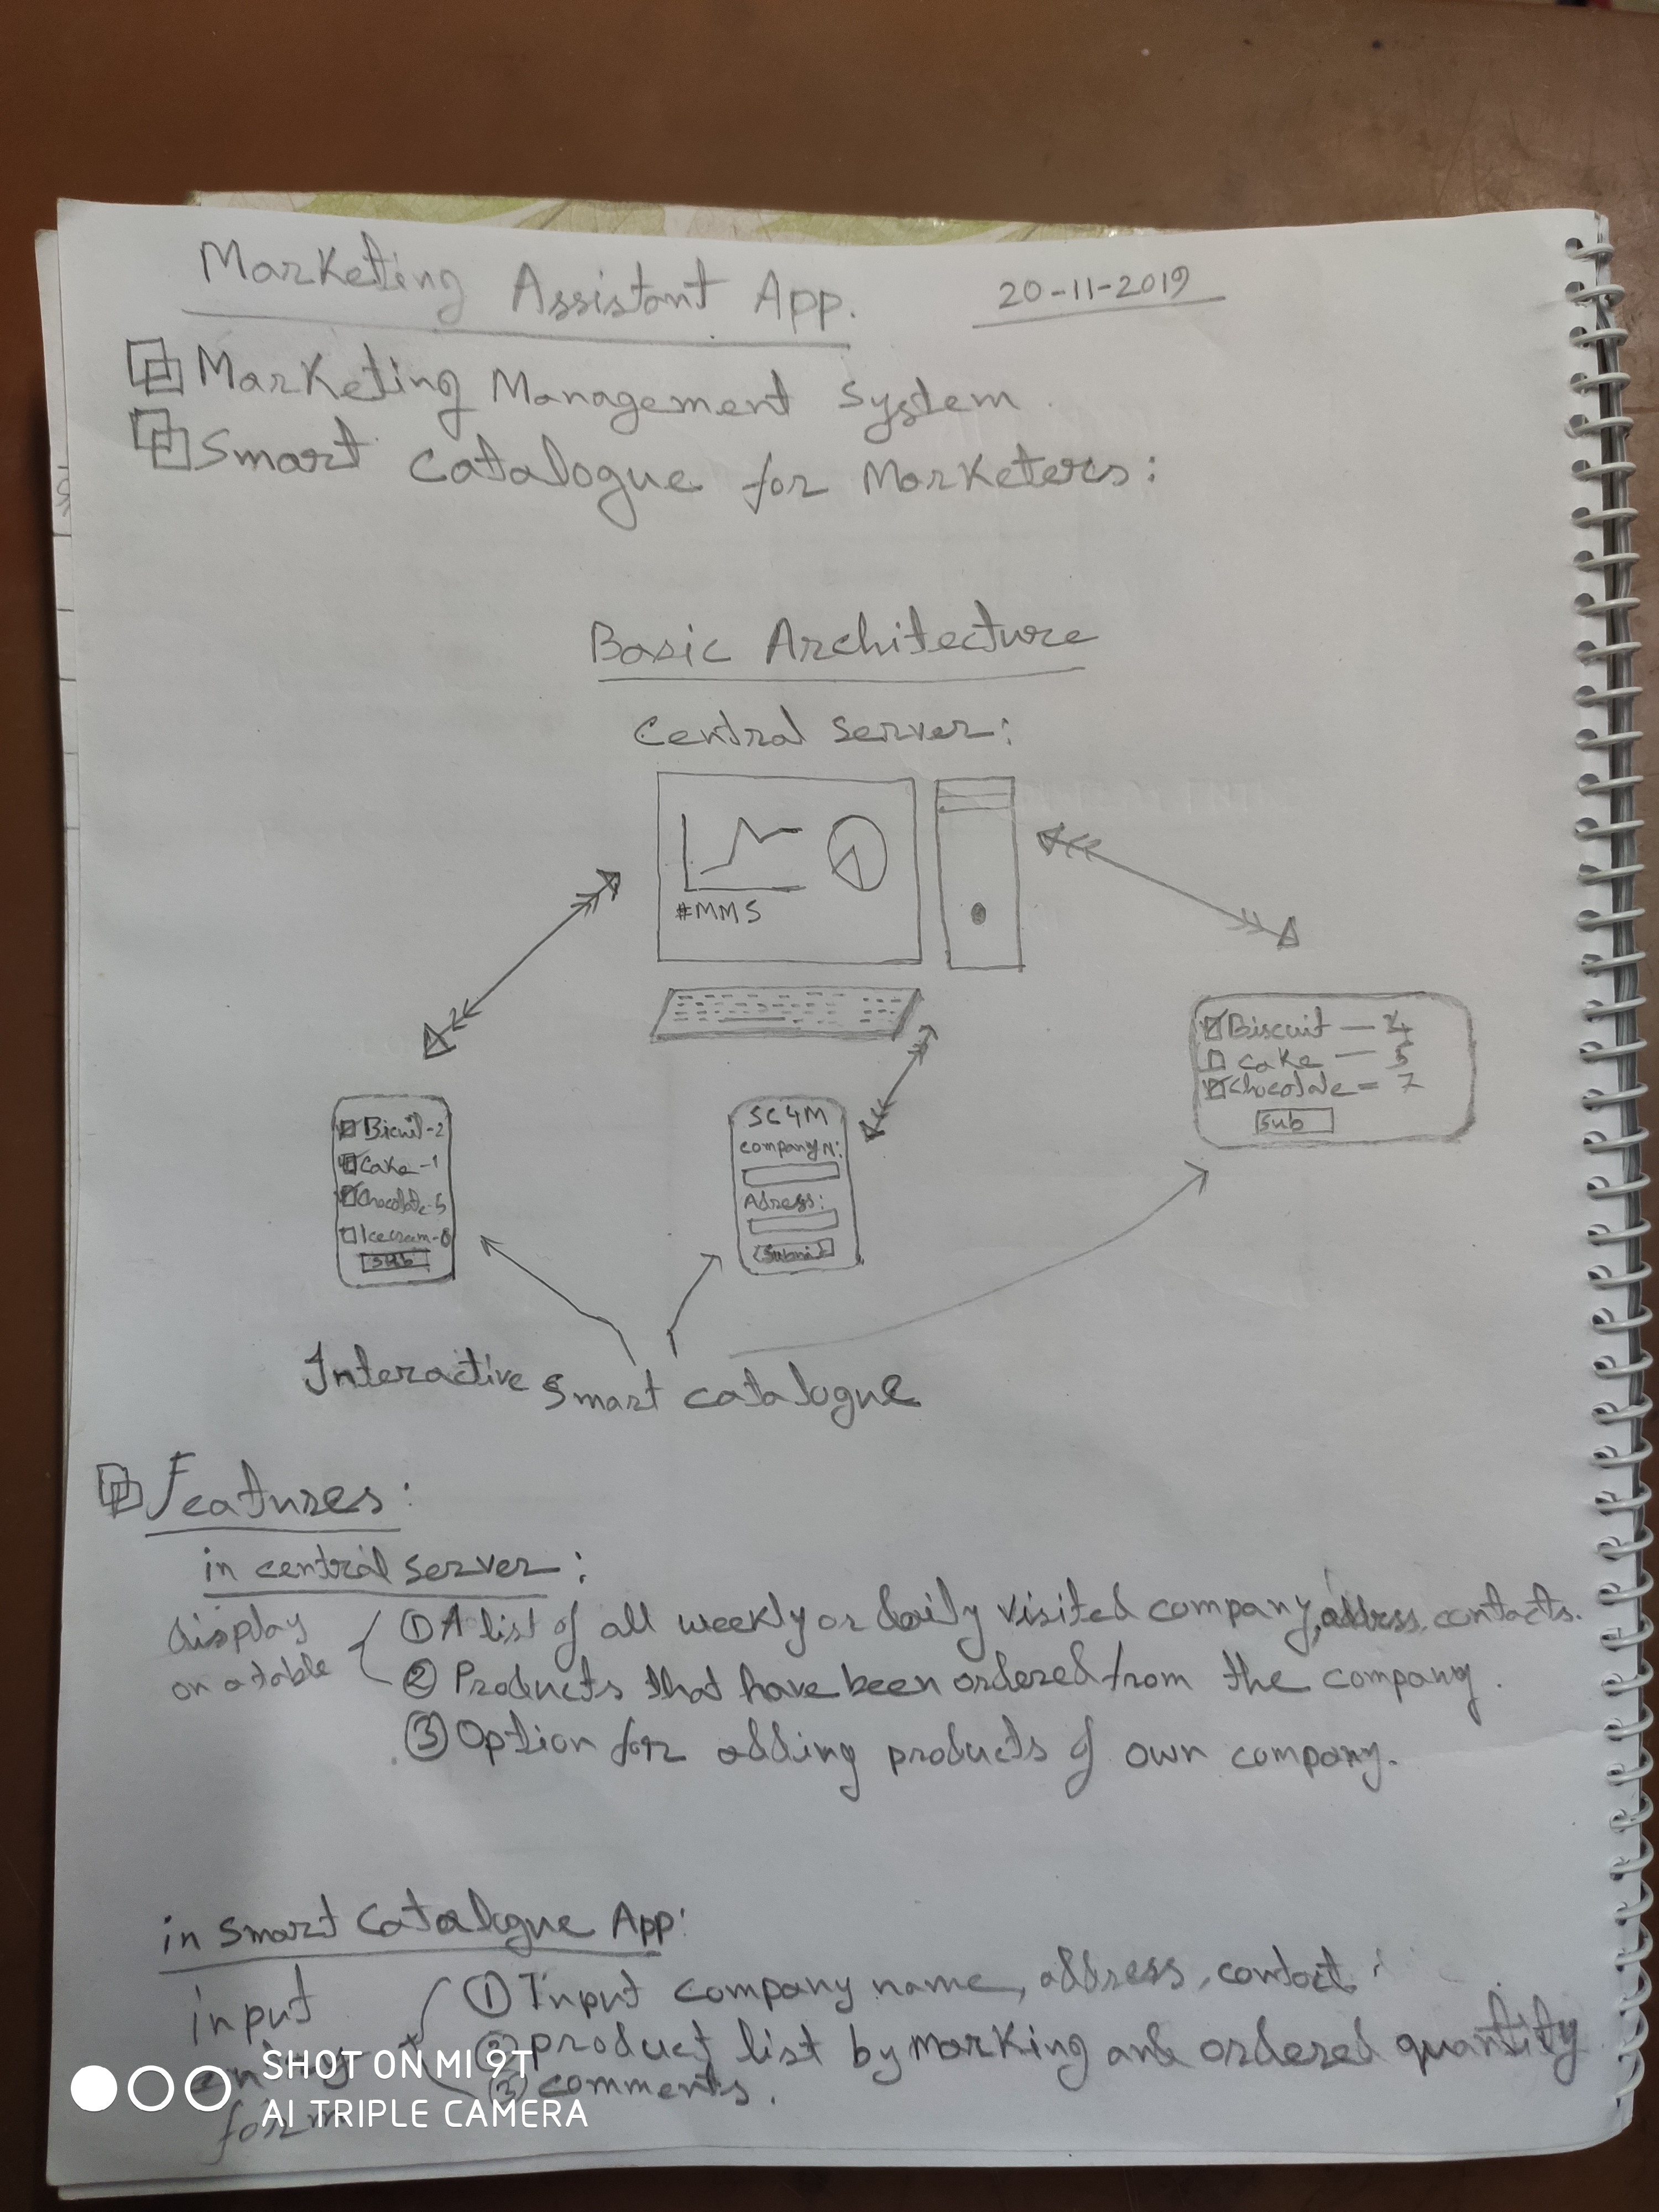 Marketing Assistant App.
20-11-2019
Marketing Management System
Smart catalogue for Marketers:
Basic Architecture
Central server:
#MMS
Biscuit — 4
Cake — 5
Chocolate = 7
Sub
Bicuit-2
Cake-1
Chocolate-5
Icecream-0
Sub
SC4M
Company N:
Adress:
Submit
Interactive Smart catalogue
Features:
in central server:
display on a table
① A list of all weekly or daily visited company, address, contacts.
② Products that have been ordered from the company.
③ Option for adding products of own company.
in Smart Catalogue App:
input
form
① Input company name, address, contact
② product list by marking and ordered quantity
③ comments.
SHOT ON MI 9T
AI TRIPLE CAMERA